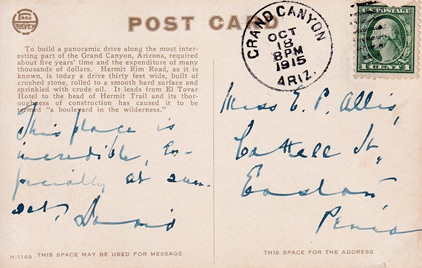 FRED HARVEY
POST CARD
GRAND CANYON
OCT
18
8PM
1915
ARIZ.
1 CENT 1
To build a panoramic drive along the most inter-
esting part of the Grand Canyon, Arizona, required
about five years' time and the expenditure of many
thousands of dollars. Hermit Rim Road, as it is
known, is today a drive thirty feet wide, built of
crushed stone, rolled to a smooth hard surface and
sprinkled with crude oil. It leads from El Tovar
Hotel to the head of Hermit Trail and its thor-
oughness of construction has caused it to be
termed "a boulevard in the wilderness."
This place is
incredible, Es-
pecially at sun-
set.
Miss E. P. Allis,
Cattell St,
Easton,
Penna
H-1149
THIS SPACE MAY BE USED FOR MESSAGE
THIS SPACE FOR THE ADDRESS